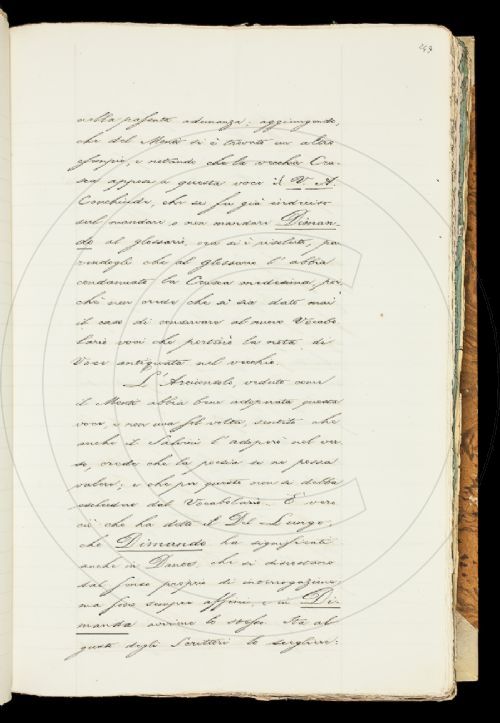 249
nella passata adunanza: aggiungendo,
che del Monti si è trovato un altro
esempio, e notando che la vecchia Cru-
sca appose a questa voce il V. A.
Conchiude, che se fu già indeciso
sul mandare, o non mandare Diman-
do al glossario, ora si è risoluto, pa-
rendogli che al glossario l'abbia
condannata la Crusca medesima, per-
chè non crede che si sia dato mai
il caso di conservare al nuovo Vocabo-
lario voci che portino la nota di
Voce antiquata nel vecchio.
L'Arciconsolo, veduto come
il Monti abbia bene adoperata questa
voce, e non una sol volta, sentito che
anche il Salvini l'adoperò nel ver-
so, crede che la poesia se ne possa
valere; e che per questo non si debba
escludere dal Vocabolario. È vero
ciò che ha detto il Del Lungo,
che Dimando ha significati
anche in Dante, che si discostano
dal senso proprio di interrogazione;
ma sono sempre affini, e in Di-
manda avviene lo stesso. Sta al
gusto degli Scrittori lo scegliere: